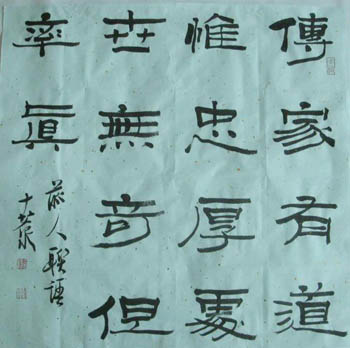 傳家有道
惟忠厚處
世無奇但
率真
前人聯語